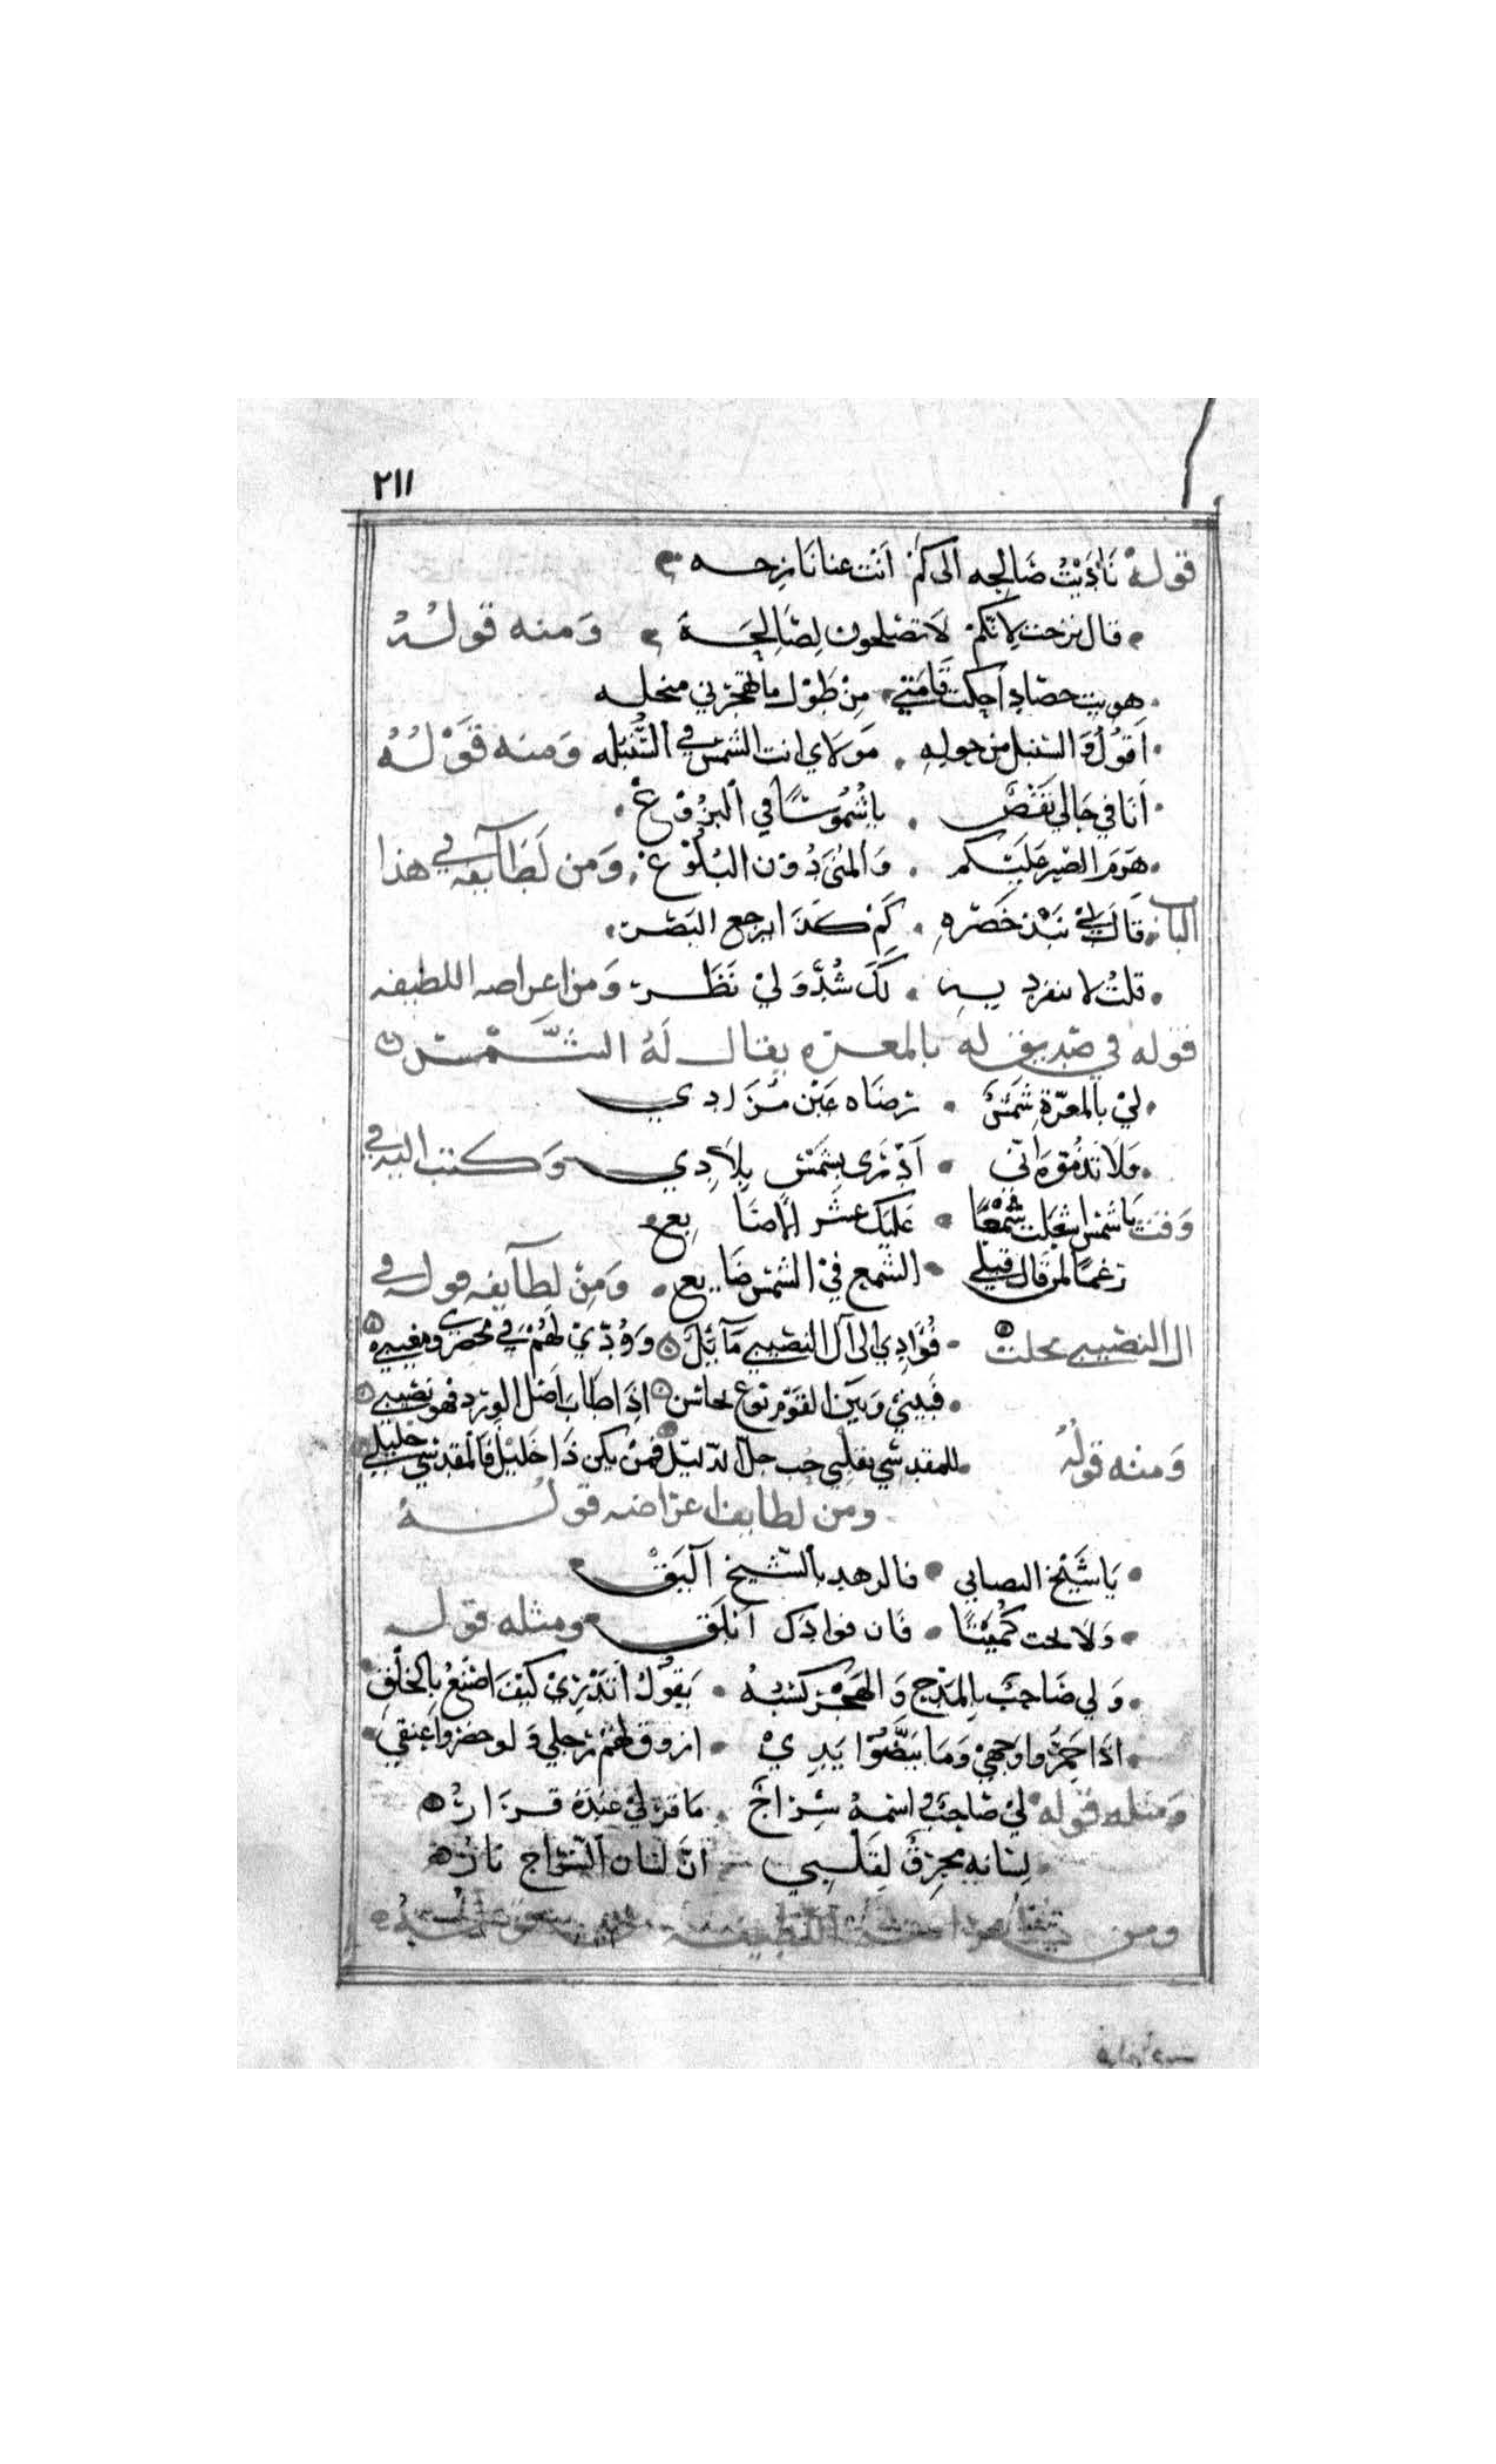 ٢١١
قوله نَادَيْتُ صَالحِه الى كَمْ اَنْت عنا نَازِحـه
قال نزحت لانّكمْ لَا تصْلحون لِصَالِحَـةَ وَمنه قولُـهُ
هويت حصّادا حكت قَامَتي مِنْ طُوْل ما تهجرني منجله
اَقوُلُ وَالسّنبل من حولهِ مَوْلَاي انت الشمسُ في السُّنْبُله وَمنه قَوْلُـهُ
اَنَا في حَالي نَقْصٍ يا شُمُوسًا في الْبزُوْغْ
هَرَم الصّبر عَلَيْكم وَالمُنَى دُوْن البُلُوْغْ وَمن لَطَآئفه في هذا
الباب قَالَ لي نَبْدُ خصْره كَمْ كَذَا ارجع البَصَر
قلتُ لا تنفرد بـه لَكَ شُدَّ وَلِيْ نَظَـر وَمن اغراضه اللطيفه
قوله في صَديق له بالمعـرّه يقال لَهُ الشَّـمْـس
لِيْ بالمعرّةِ شَمْسٌ ترضَاه عَيْن مُـرَادِي
وَلَا تذمّوه اِنّي اَدْرَى بِشَمْسِ بِلَادِي وَكتب اليه في
وَقت يا شمس اشعلت شَمْعًا عَليك عشر الاصَابِع
رَغمًا لمن قال قبلي الشمع في الشمْس ضَايع وَمِنْ لطآيفه قوله في
ال النصيبي بحلب فُؤَادِي الى آل النصيبي مَآئِلٌ وَوُدّيْ لَهُمْ في محضري ومغيبي
فبيني وَبَين القوْم نوع تجانس اِذَا طَابَ اصْل الورد فهو نصيبي
وَمنه قولُهُ للمقدسي بقلبي حُب جلّ الدّليل فمنْ يكن ذَا خَليْل فَالمقدسي خليلي
ومن لطايف اغراضه قولُـهُ
يَا شَيْخ التصابي فالزهد بالشيخ اَليَقْ
وَلا تحت كُمَيْتًا فَان فوادك اَبْلَق ومثله قولـه
وَلي صَاحِبٌ بالمَدْح وَالهَجْو كسْبُهُ يَقوُلُ اَتَدْرِيْ كيْفَ اصْنَعُ بِالخلْقِ
اذَا حَمّرُوا وَجهيْ وَمَا بَيّضُوا يَدِيْ ازرق لهُمْ رجلي وَلو خضروا عنقي
وَمثله قوله لِيْ صَاحِبٌ اسمهُ سِرَاجٌ مَا قرّ لِيْ عِندَهُ قَـرَارُ
لِسَانه محرِقٌ لِقَلْبي اِنَّ لسَان السّراج نَارُ
ومن